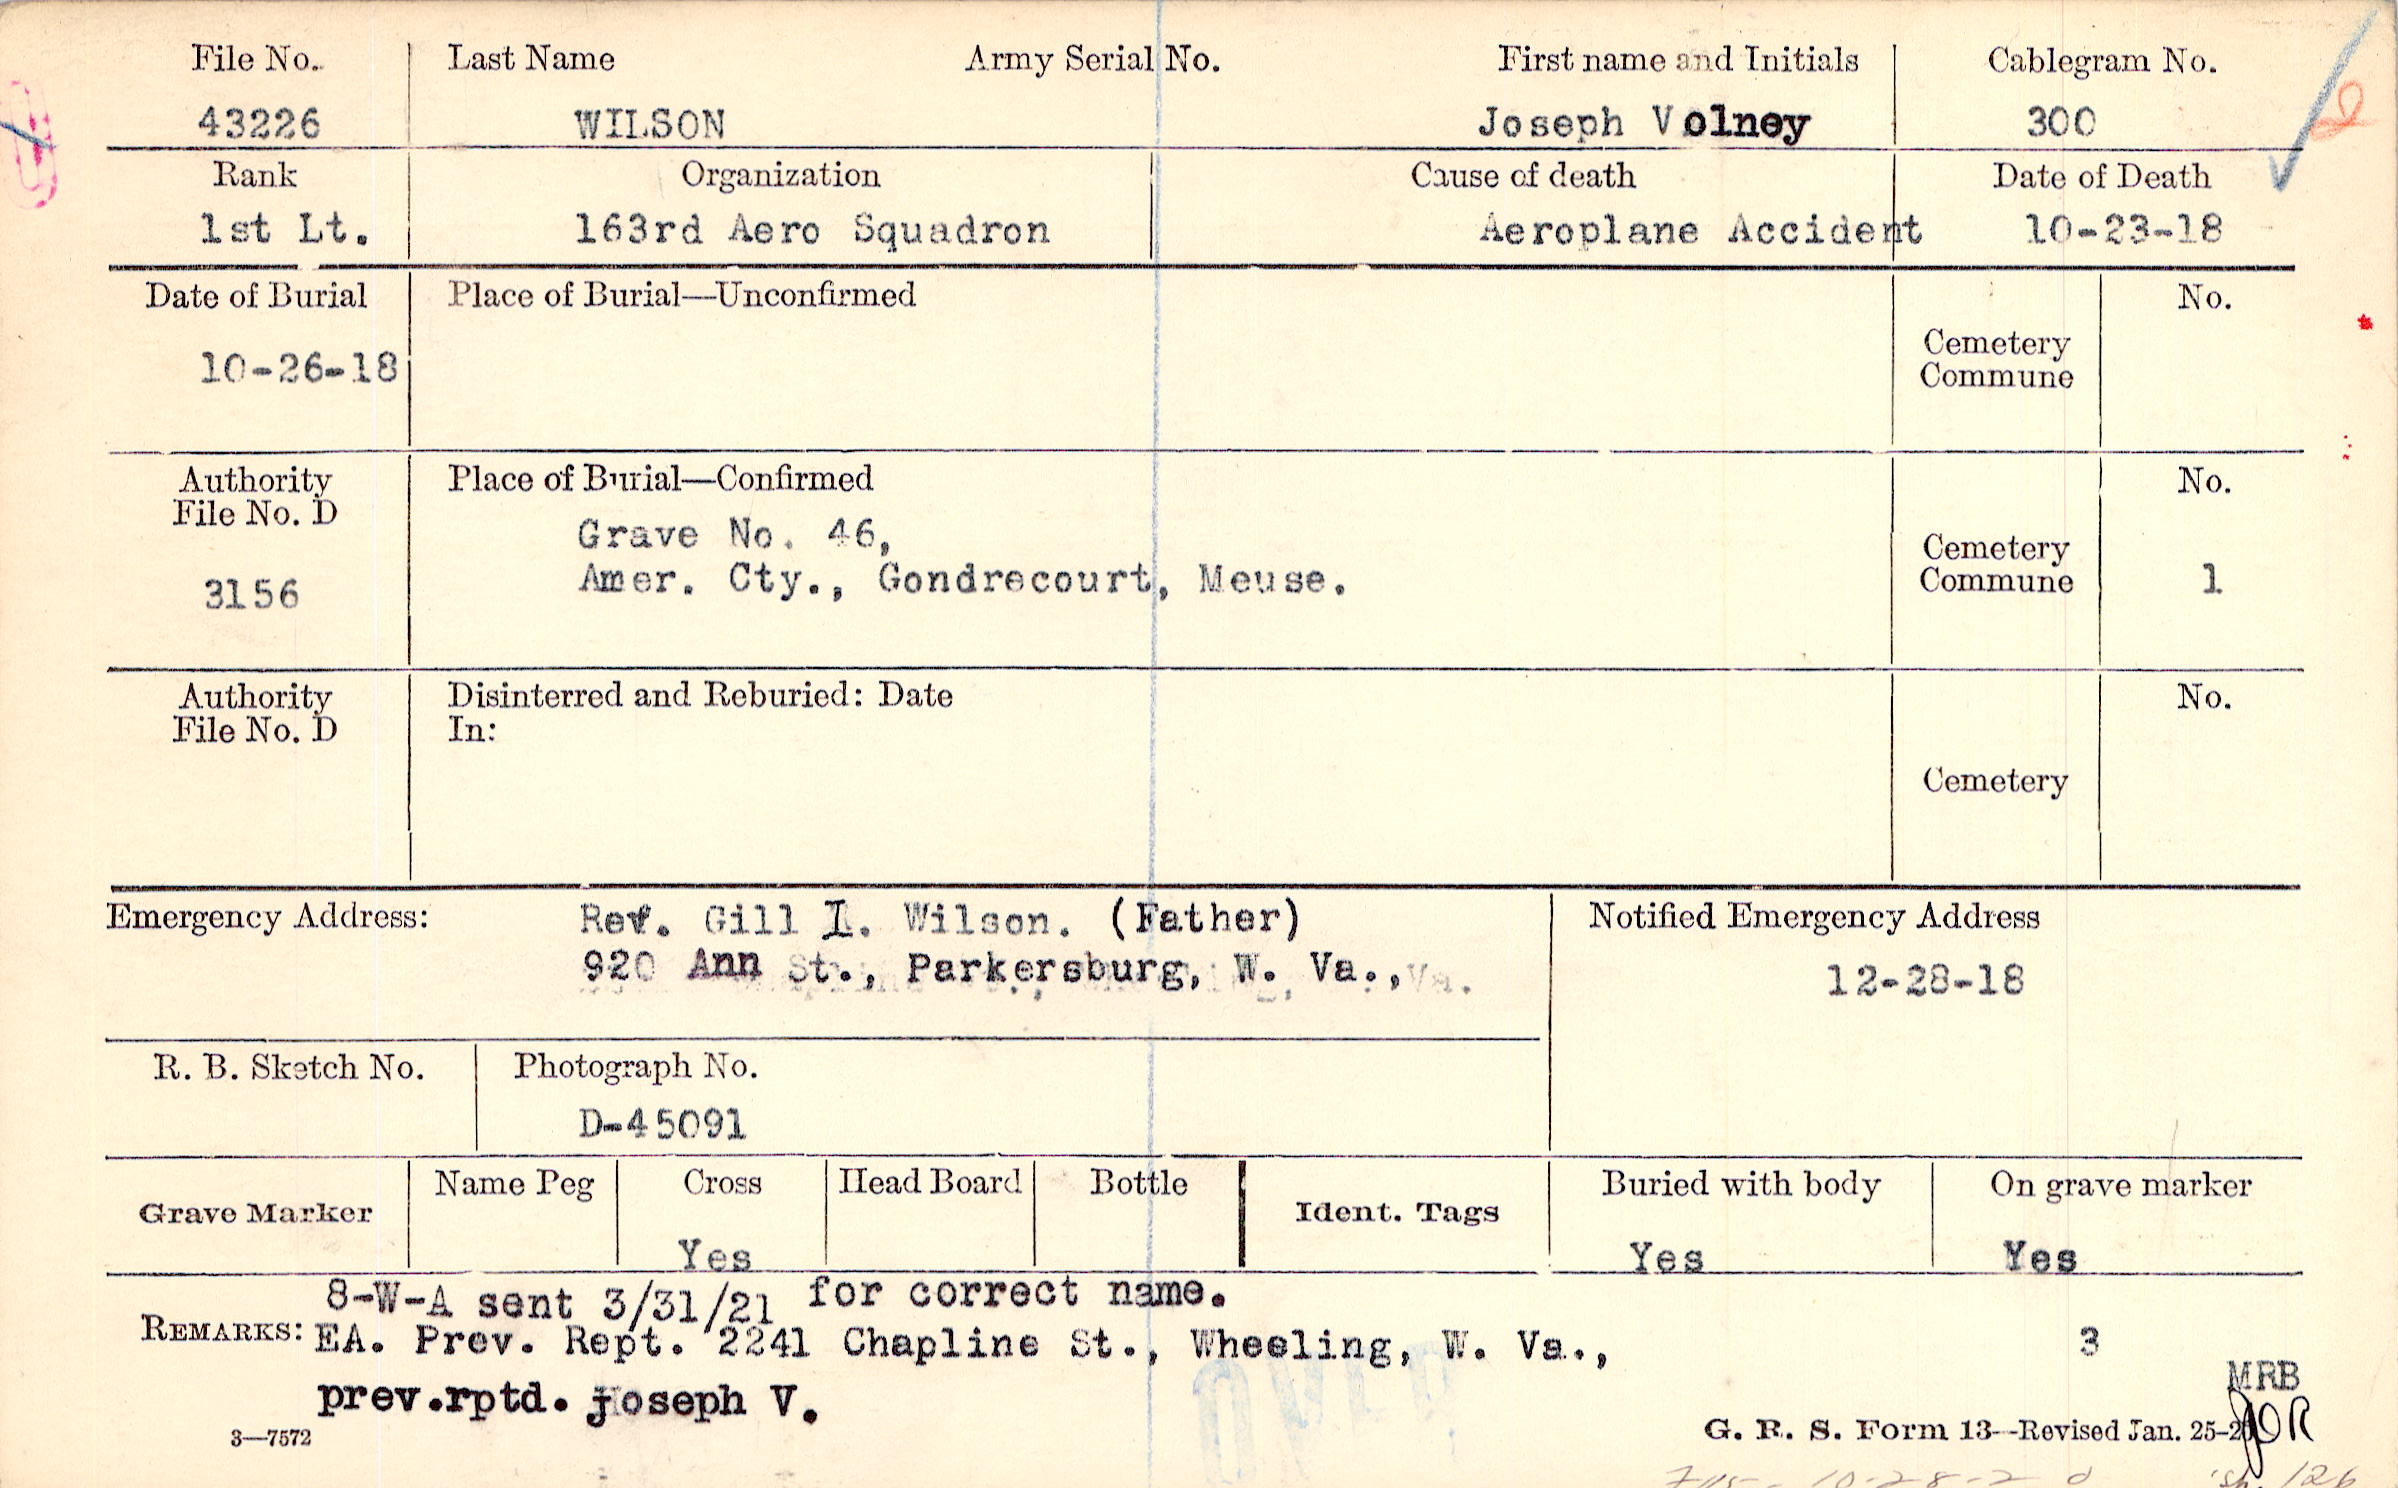 File No. Last Name Army Serial No. First name and Initials Cablegram No.
43226 WILSON Joseph Volney 300
Rank Organization Cause of death Date of Death
1st Lt. 163rd Aero Squadron Aeroplane Accident 10-23-18
Date of Burial Place of Burial—Unconfirmed No.
Cemetery
Commune
10-26-18
Authority Place of Burial—Confirmed No.
File No. D
Grave No. 46,
Cemetery
Amer. Cty., Gondrecourt, Meuse. Commune 1
3156
Authority Disinterred and Reburied: Date No.
File No. D In:
Cemetery
Emergency Address: Rev. Gill I. Wilson. (Father) Notified Emergency Address
920 Ann St., Parkersburg, W. Va., Va.
12-28-18
R. B. Sketch No. Photograph No.
D-45091
Grave Marker Name Peg Cross Head Board Bottle Ident. Tags Buried with body On grave marker
Yes Yes Yes
8-W-A sent 3/31/21 for correct name.
REMARKS: EA. Prev. Rept. 2241 Chapline St., Wheeling, W. Va., 3
MRB
prev.rptd. joseph V.
JOR
3—7572 G. R. S. Form 13—Revised Jan. 25-2